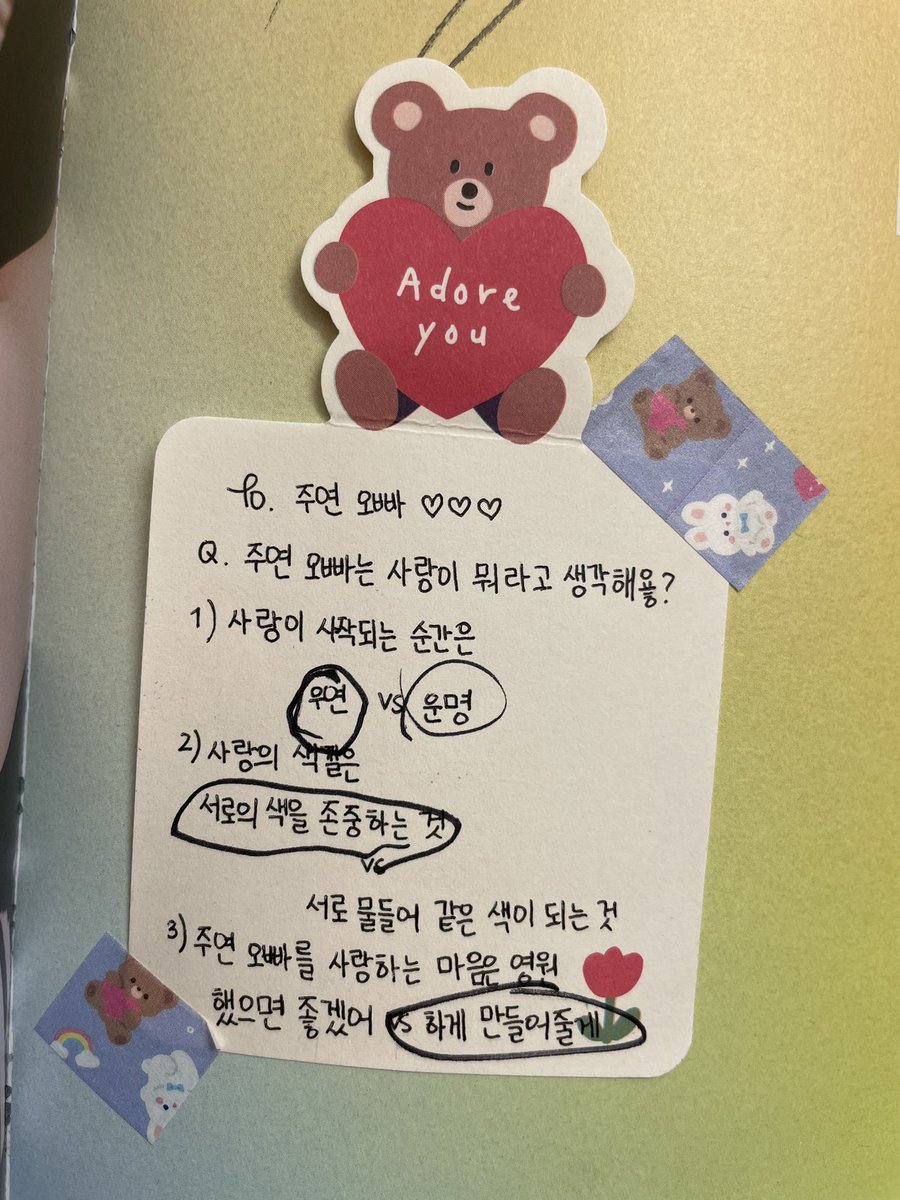 Adore
you
To. 주연 오빠 ♡♡♡
Q. 주연 오빠는 사랑이 뭐라고 생각해욯?
1) 사랑이 시작되는 순간은
우연 vs 운명
2) 사랑의 색깔은
서로의 색을 존중하는 것
vs
서로 물들어 같은 색이 되는 것
3) 주연 오빠를 사랑하는 마음은 영원
했으면 좋겠어 vs 하게 만들어줄게